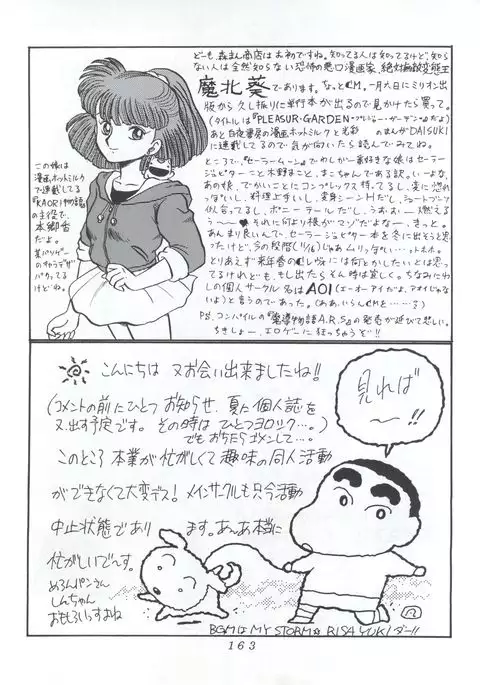 どーも、森まん商店はお初ですね。知ってる人は知ってるけど、知ら
ない人は全然知らない恐怖の悪口漫画家、絶対無敵変態王
魔北葵であります。なっとCM。一月六日にミリオン出
版から久し振りに単行本が出るので見かけたら買って。
(タイトルは『PLEASUR・GARDEN・プレジャー・ガーデン』だよ)
あと白夜書房の漫画ホットミルクと光彩のまんがDAISUKI
に連載してるので気が向いたら読んでみてね。
ところで、『セーラームーン』でわしが一番好きな娘はセーラー
ジュピターこと木野まこと、まこちゃんである訳。いーよな、
あの娘、でかいことにコンプレックス持ってるし、妄に惚れ
っぽいし、料理上手いし、変身シーンHだし、ショートブーツ
似会ってるし、ポニーテールだし、うおぉぉー燃えるう
それに何より横がマッツだよなー、きっと。
あんまり良いんで、セーラージュピター本を冬に出そうと思
ったけど、今の段階じゃあムリっぽい
とりあえず来年春のCレヴォには何とかしたいとは思っ
てるけれども、もし出たらその時は宜しく。ちなみにわ
しの個人サークル名はAOI(エーオーアイだよ、アオイじゃな
いよ)と言うのであった。(ああ、いらんCMを……る)
P.S. コンパイルの『魔導物語A.R.S』の発売が延びて悲しい。
ちきしょー、エロゲーに狂っちゃうぞ!!
この娘は
漫画ホットミルク
で連載してる
『KAORI物語』
の主役で、
本郷香
だよ。
某パソゲー
のキャラデザ
パクってる
けどね。
こんにちは 又お会い出来ましたね!!
(コメントの前にひとつ お知らせ、夏に個人誌を
又、出す予定です。その時は ひとつヨロック…。)
でも おちたら ゴメンして…。
このところ 本業が忙がしくて 趣味の同人活動
ができなくて大変デス! メインサークルも只今活動
中止状態であります。あ〜あ 本当に
忙がしいで〜す。
めろんパンさん
しんちゃん
おもしろいっすよね
見れば
〜!!
BGMは MY STORM☆ RISA YUKI ダー!!
163